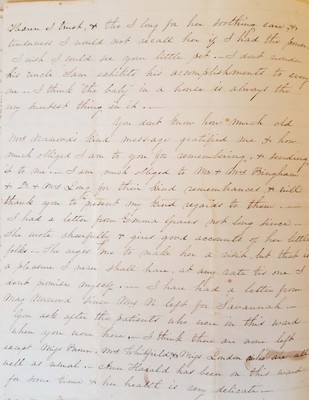 Heaven I trust, & tho I long for her soothing care, &
kindness I would not recall her if I had the power
I wish I could see your little pet. I dont wonder
his uncle Sam exhibits his accomplishments to every
one. I think the baby in a house is always the
very sweetest thing in it.
You dont know how much old
Mrs kind message gratified me & how
much obliged I am to you for remembering & sending
it to me. I am much obliged to Mr & Mrs Bingham
& Dr & Mrs Long for their kind remembrances & will
thank you to present my kind regards to them.
I had a letter from Emma Spears not long since
She wrote cheerfully & gives good accounts of her little
folks. She urges me to make her a visit but that is
a pleasure I never shall have, at any rate tis one I
dont promise myself. I have had a letter from
Mag since Mrs N left for Savannah.
You ask after the patients who were in this ward
when you were here. I think there are none left
except Miss Mrs Whitfield & Miss London who are all
well as usual. Ann has been on this ward
for some time & her health is very delicate.